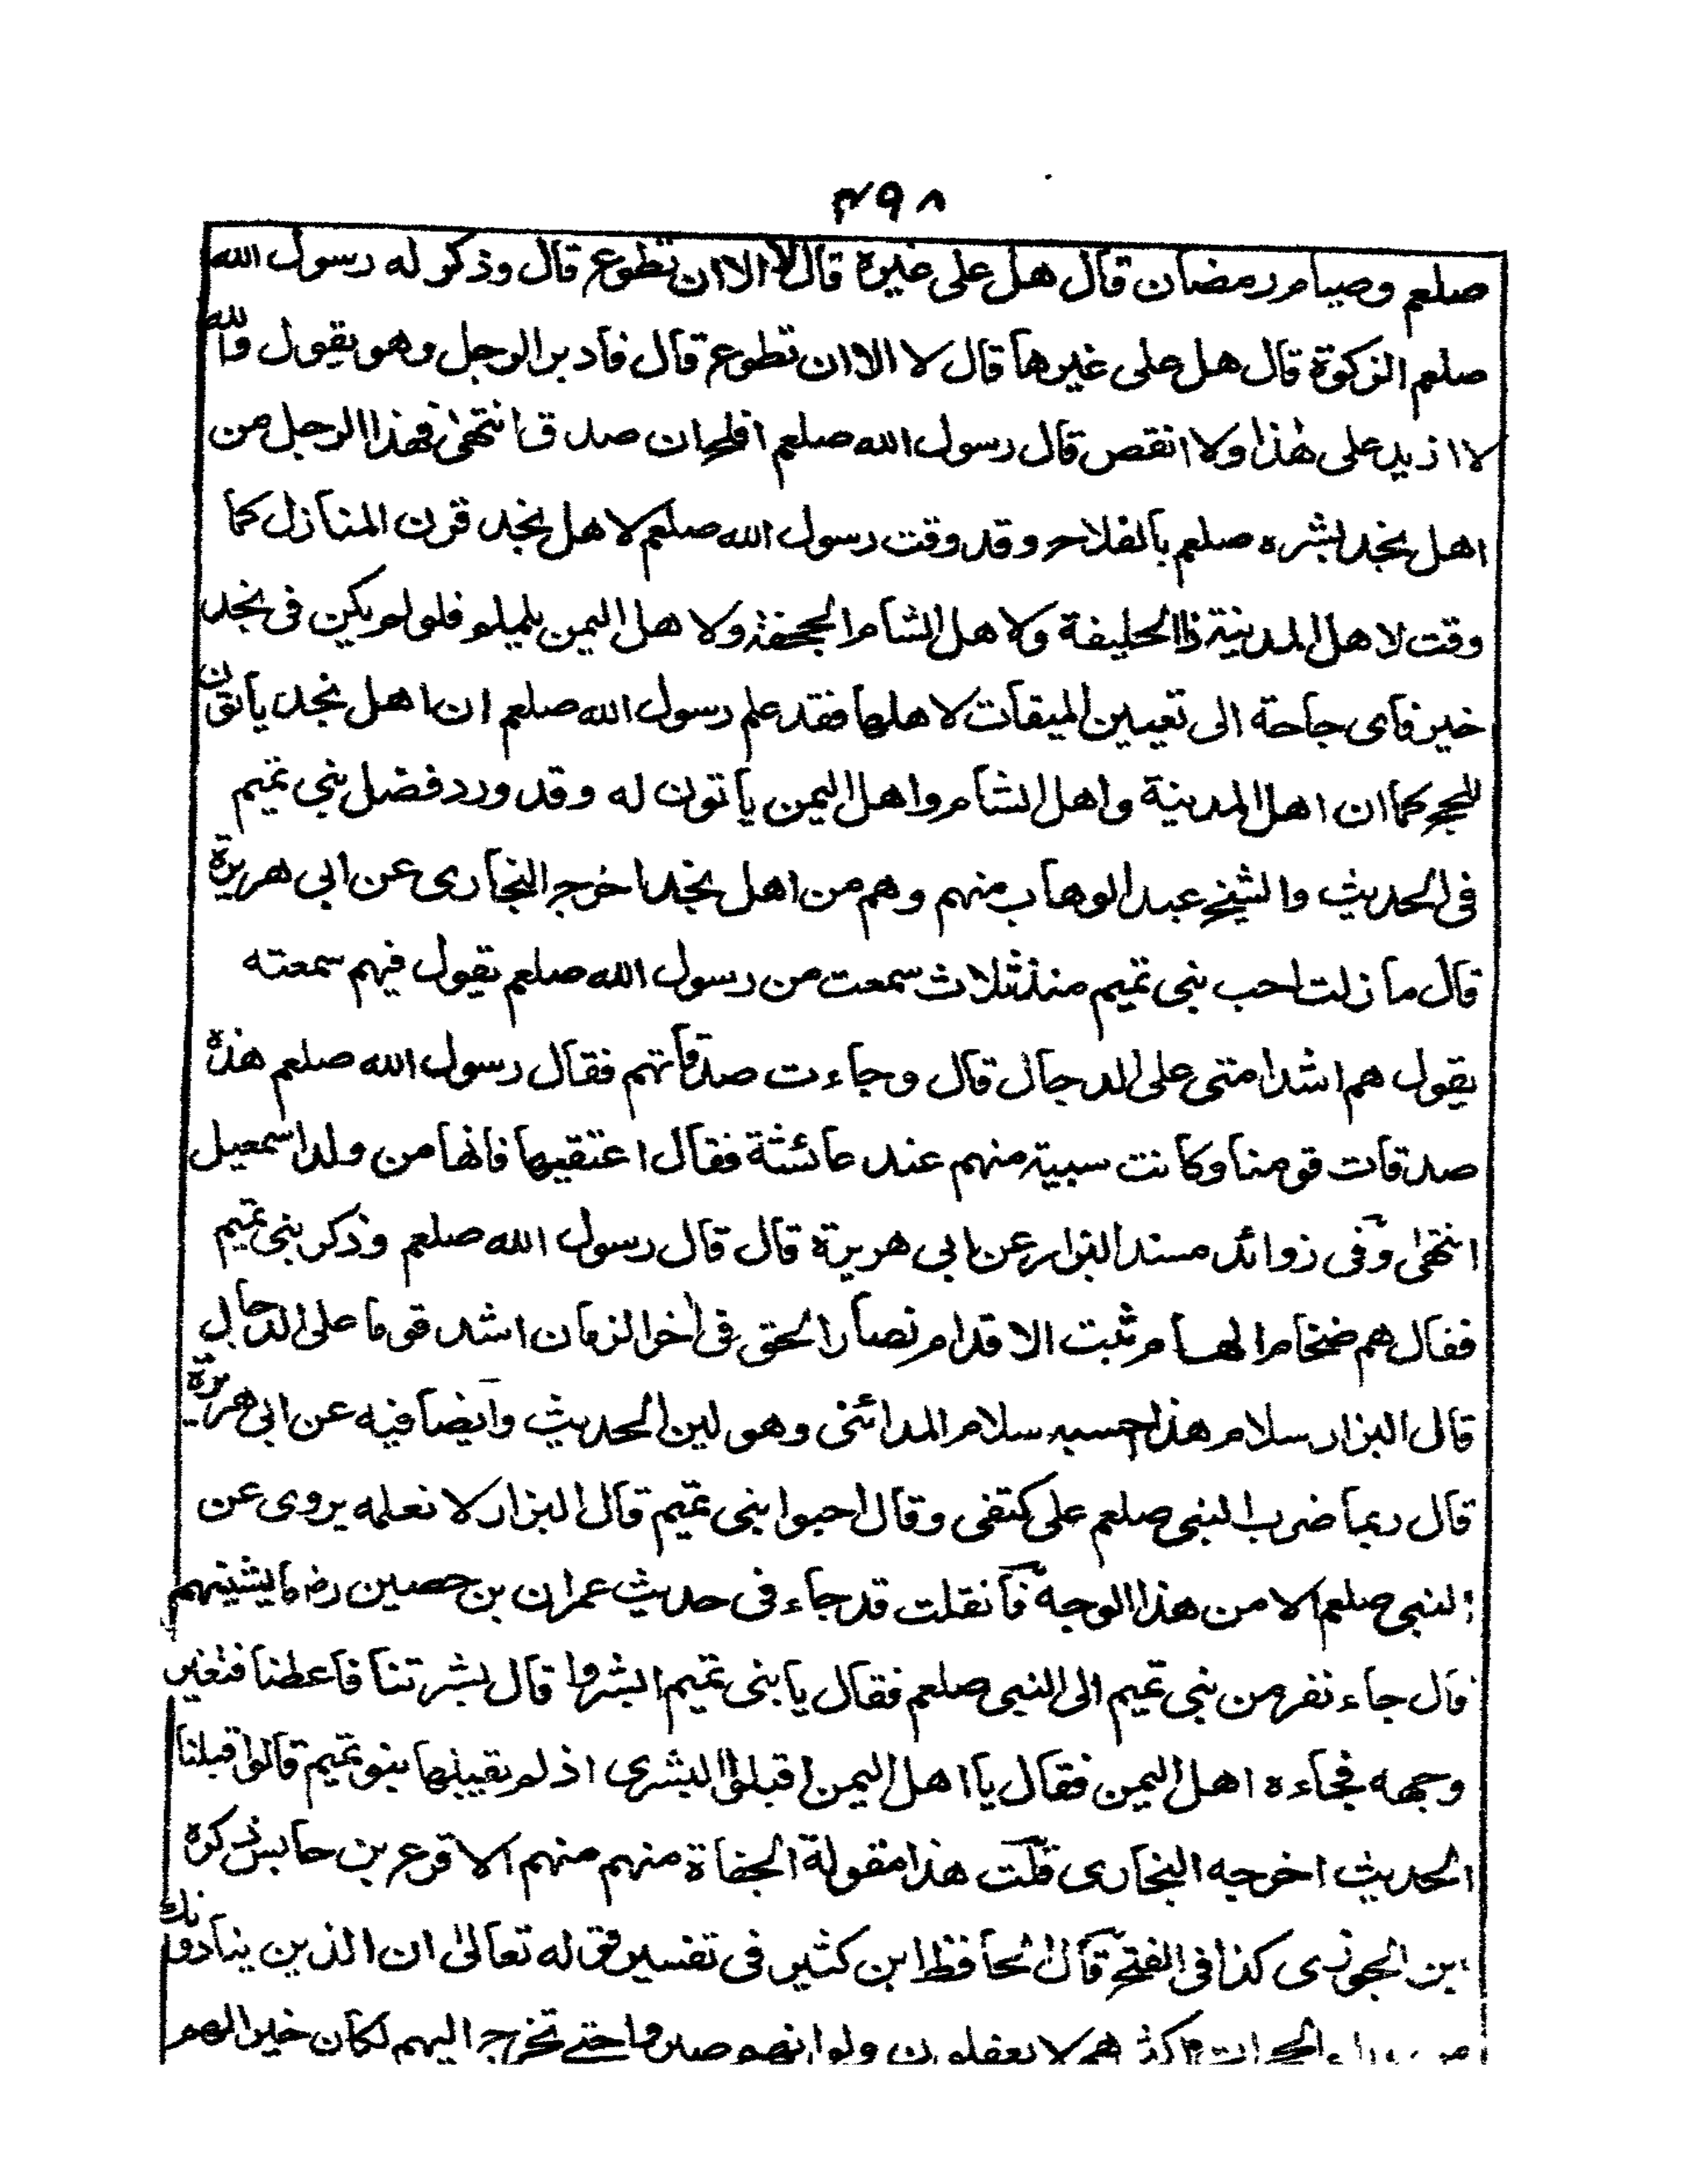 ٤٩٨
صلعم وصيام رمضان قال هل على غيره قال لا الا ان تطوع قال وذكر له رسول الله
صلعم الزكوة قال هل على غيرها قال لا الا ان تطوع قال فادبر الرجل وهو يقول والله
لا ازيد على هذا ولا انقص قال رسول الله صلعم افلح ان صدق انتهى فهذا الرجل من
اهل نجد بشره صلعم بالفلاح وقد وقت رسول الله صلعم لاهل نجد قرن المنازل كما
وقت لاهل المدينة ذا الحليفة ولاهل الشام الجحفة ولاهل اليمن يلملم فلو لم يكن فى نجد
خير فاى حاجة الى تعيين الميقات لاهلها فقد علم رسول الله صلعم ان اهل نجد ياتون
للحج كما ان اهل المدينة واهل الشام واهل اليمن ياتون له وقد ورد فضل بنى تميم
فى الحديث والشيخ عبد الوهاب منهم وهم من اهل نجد اخرج البخارى عن ابى هريرة
قال ما زلت احب بنى تميم منذ ثلاث سمعت من رسول الله صلعم يقول فيهم سمعته
يقول هم اشد امتى على الدجال قال وجاءت صدقاتهم فقال رسول الله صلعم هذه
صدقات قومنا وكانت سبية منهم عند عائشة فقال اعتقيها فانها من ولد اسمعيل
انتهى وفى زوائد مسند البزار عن ابى هريرة قال قال رسول الله صلعم وذكر بنى تميم
فقال هم ضخام الهام ثبت الاقدام نصار الحق فى اخر الزمان اشد قوما على الدجال
قال البزار سلام هذا احسبه سلام المدائنى وهو لين الحديث وايضا فيه عن ابى هريرة
قال ربما ضرب النبى صلعم على كتفى وقال احبوا بنى تميم قال البزار لا نعلمه يروى عن
النبى صلعم الا من هذا الوجه فان قلت قد جاء فى حديث عمران بن حصين رض ما يشينهم
قال جاء نفر من بنى تميم الى النبى صلعم فقال يا بنى تميم ابشروا قال بشرتنا فاعطنا فتغير
وجهه فجاءه اهل اليمن فقال يا اهل اليمن اقبلوا البشرى اذ لم يقبلها بنو تميم قالوا قبلنا
الحديث اخرجه البخارى قلت هذا مقولة الجفاة منهم منهم الاقرع بن حابس ذكره
ابن الجوزى كذا فى الفتح قال الحافظ ابن كثير فى تفسير قوله تعالى ان الذين ينادونك
من وراء الحجرات اكثرهم لا يعقلون ولو انهم صبروا حتى تخرج اليهم لكان خيرا لهم